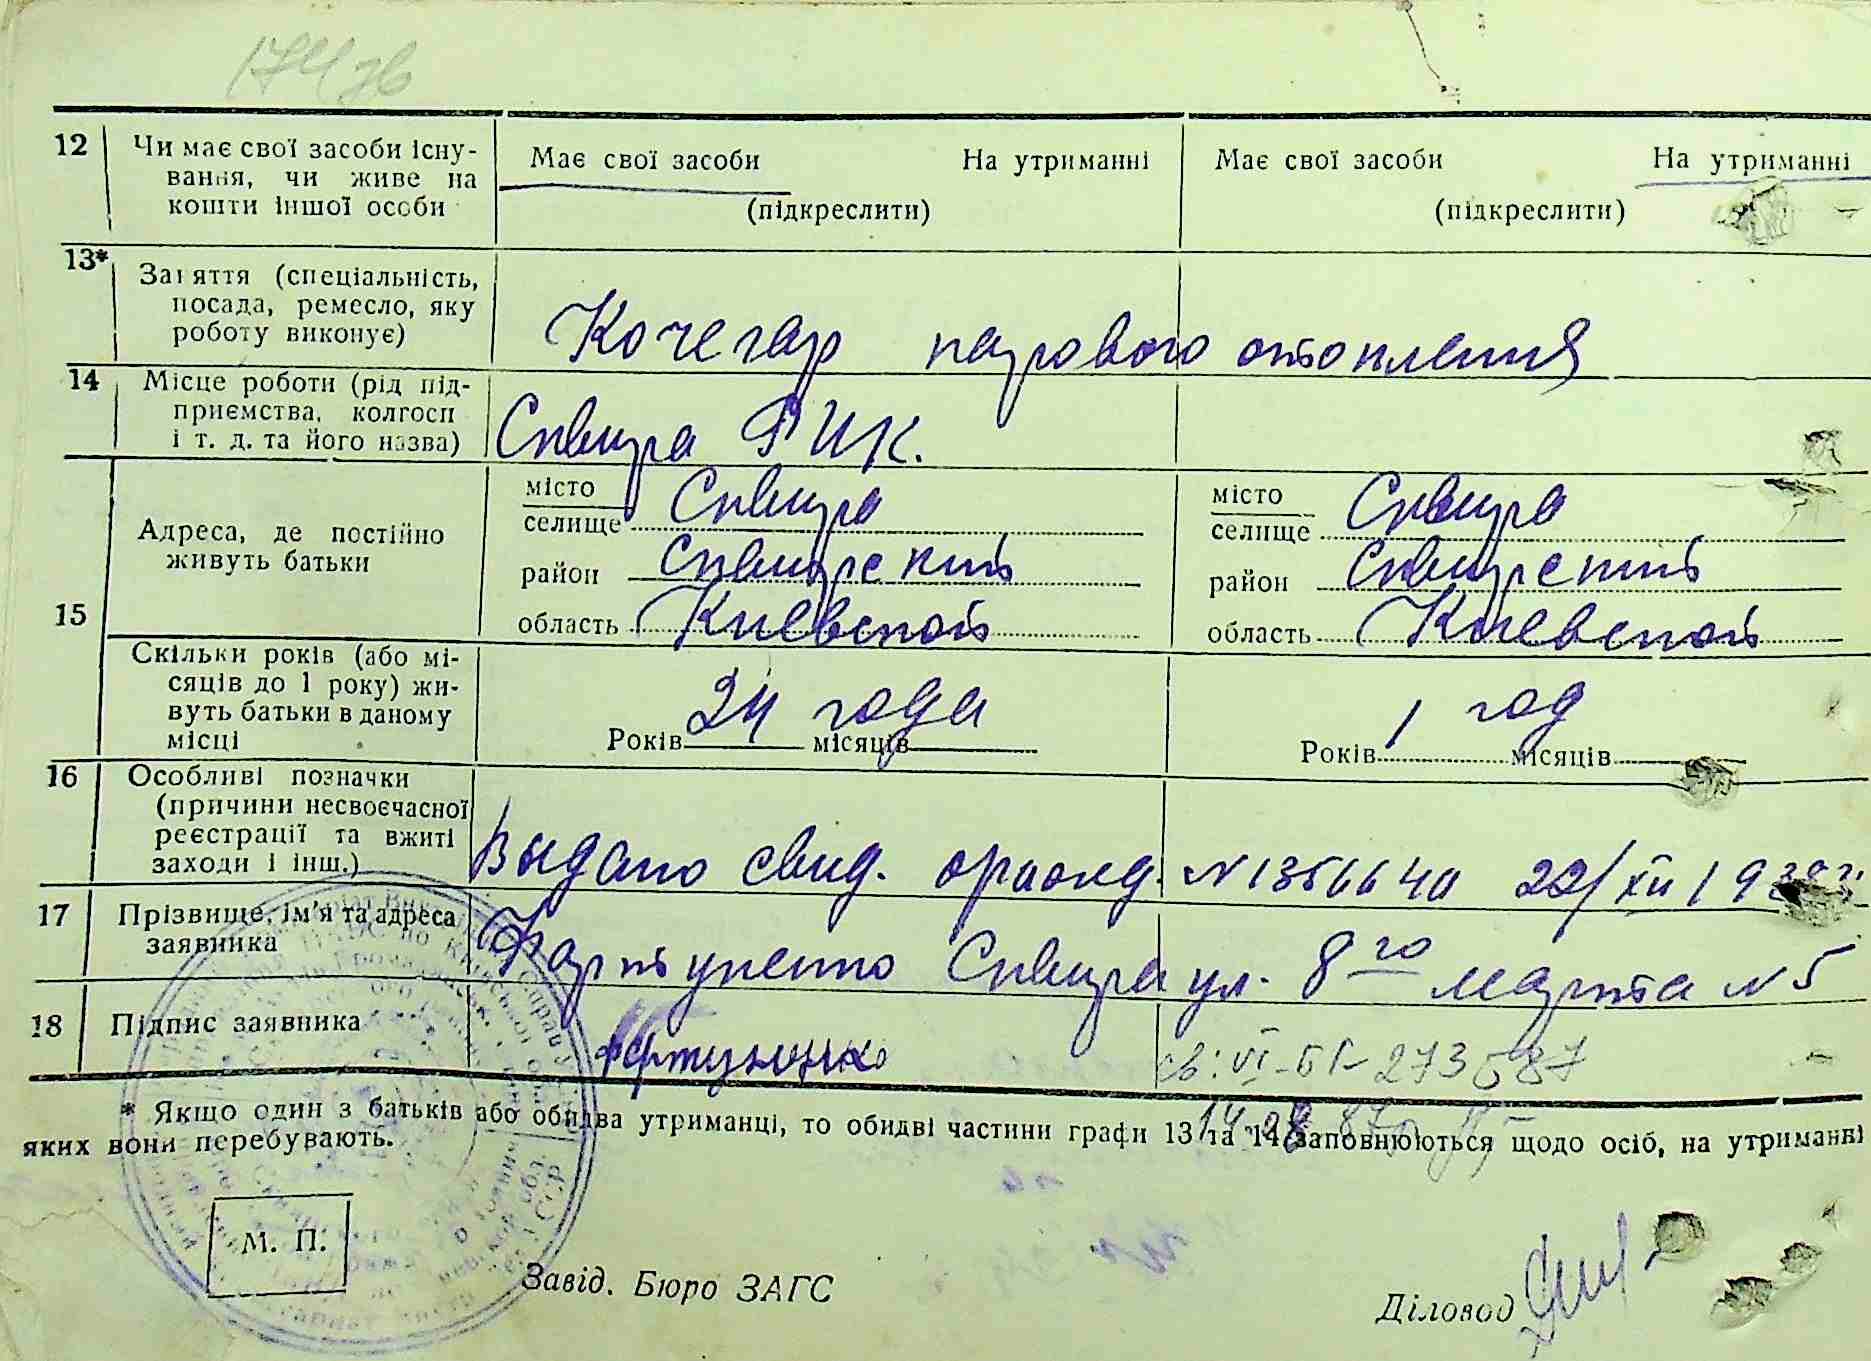 174
12 Чи має свої засоби існу-
вання, чи живе на
кошти іншої особи
Має свої засоби На утриманні
(підкреслити)
Має свої засоби На утриманні
(підкреслити)
13* Заняття (спеціальність,
посада, ремесло, яку
роботу виконує)
Кочегар парового отопления
14 Місце роботи (рід під-
приємства, колгосп
і т. д. та його назва)
Сквира РИК.
15
Адреса, де постійно
живуть батьки
місто
селище Сквира
район Сквирский
область Киевской
місто
селище Сквира
район Сквирский
область Киевской
Скільки років (або мі-
сяців до 1 року) жи-
вуть батьки в даному
місці
24 года
Років місяців
1 год
Років місяців
16 Особливі позначки
(причини несвоєчасної
реєстрації та вжиті
заходи і інш.)
Выдано свид. о рожд. N 1356640 22/XII 193
17 Прізвище, ім'я та адреса
заявника
Сквира ул. 8го марта N 5
18 Підпис заявника
св: VI-БК-273587
* Якщо один з батьків або обидва утриманці, то обидві частини графи 13 та 14 заповнюються щодо осіб, на утриманні
яких вони перебувають.
М. П.
Завід. Бюро ЗАГС
Діловод